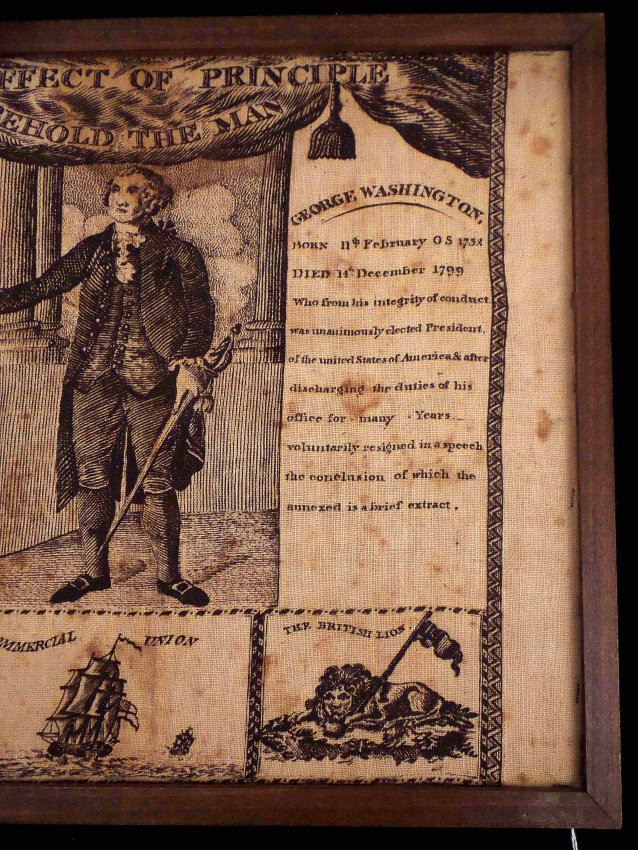 FFECT OF PRINCIPLE
EHOLD THE MAN
GEORGE WASHINGTON,
BORN 11th February OS 1732
DIED 14th December 1799
Who from his integrity of conduct
was unanimously elected President,
of the united States of America & after
discharging the duties of his
office for many Years
voluntarily resigned in a speech
the conclusion of which the
annexed is a brief extract.
MMERCIAL UNION
THE BRITISH LION